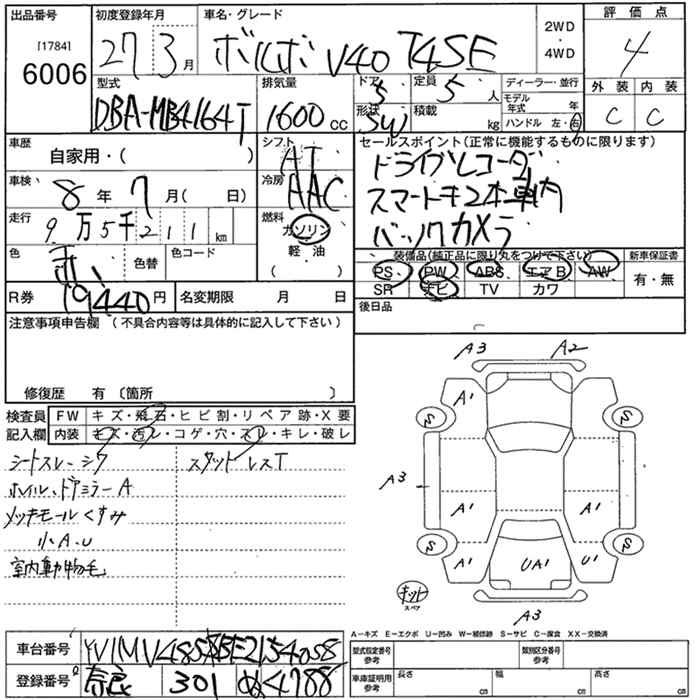 出品番号
[1784]
6006
初度登録年月
27 3月
車名・グレード
ボルボ V40 T4SE
2WD・4WD
評価点
4
外装 内装
C C
型式
DBA-MB4164T
排気量
1600cc
ドア
5
形状
SW
定員
5人
積載
kg
ディーラー・並行
モデル年式 年
ハンドル 左・右
車歴
自家用・( )
シフト
AT
車検
8年7月( 日)
冷房
AAC
走行
9万5千211km
燃料
ガソリン
軽・油
( )
色
赤
色替
色コード
R券
19440円
名変期限 月 日
セールスポイント(正常に機能するものに限ります)
ドライブレコーダ
スマートキー2本車内
バックカメラ
装備品(純正品に限り丸をつけて下さい)
新車保証書
PS PW ABS エアB AW
有・無
SR ナビ TV カワ
後日品
注意事項申告欄 (不具合内容等は具体的に記入して下さい)
修復歴 有〔箇所 〕
検査員記入欄
FW キズ・飛石・ヒビ割・リペア跡・X要
内装 キズ・汚レ・コゲ・穴・スレ・キレ・破レ
シートスレ・シワ
スタッドレスT
ホイル、ドアミラーA
メッキモールくすみ
小A.U
室内動物毛
A3 A2
A1
S S
A3
A1 A1
S S
A1 UA1 U1
キット
スペア
A3
A－キズ E－エクボ U－凹み W－補修跡 S－サビ C－腐食 XX－交換済
車台番号
YV1MV485BF2154058
登録番号
奈良 301 ぬ4788
型式指定番号
参考
類別区分番号
参考
車庫証明用
参考
長さ cm
幅 cm
高さ cm